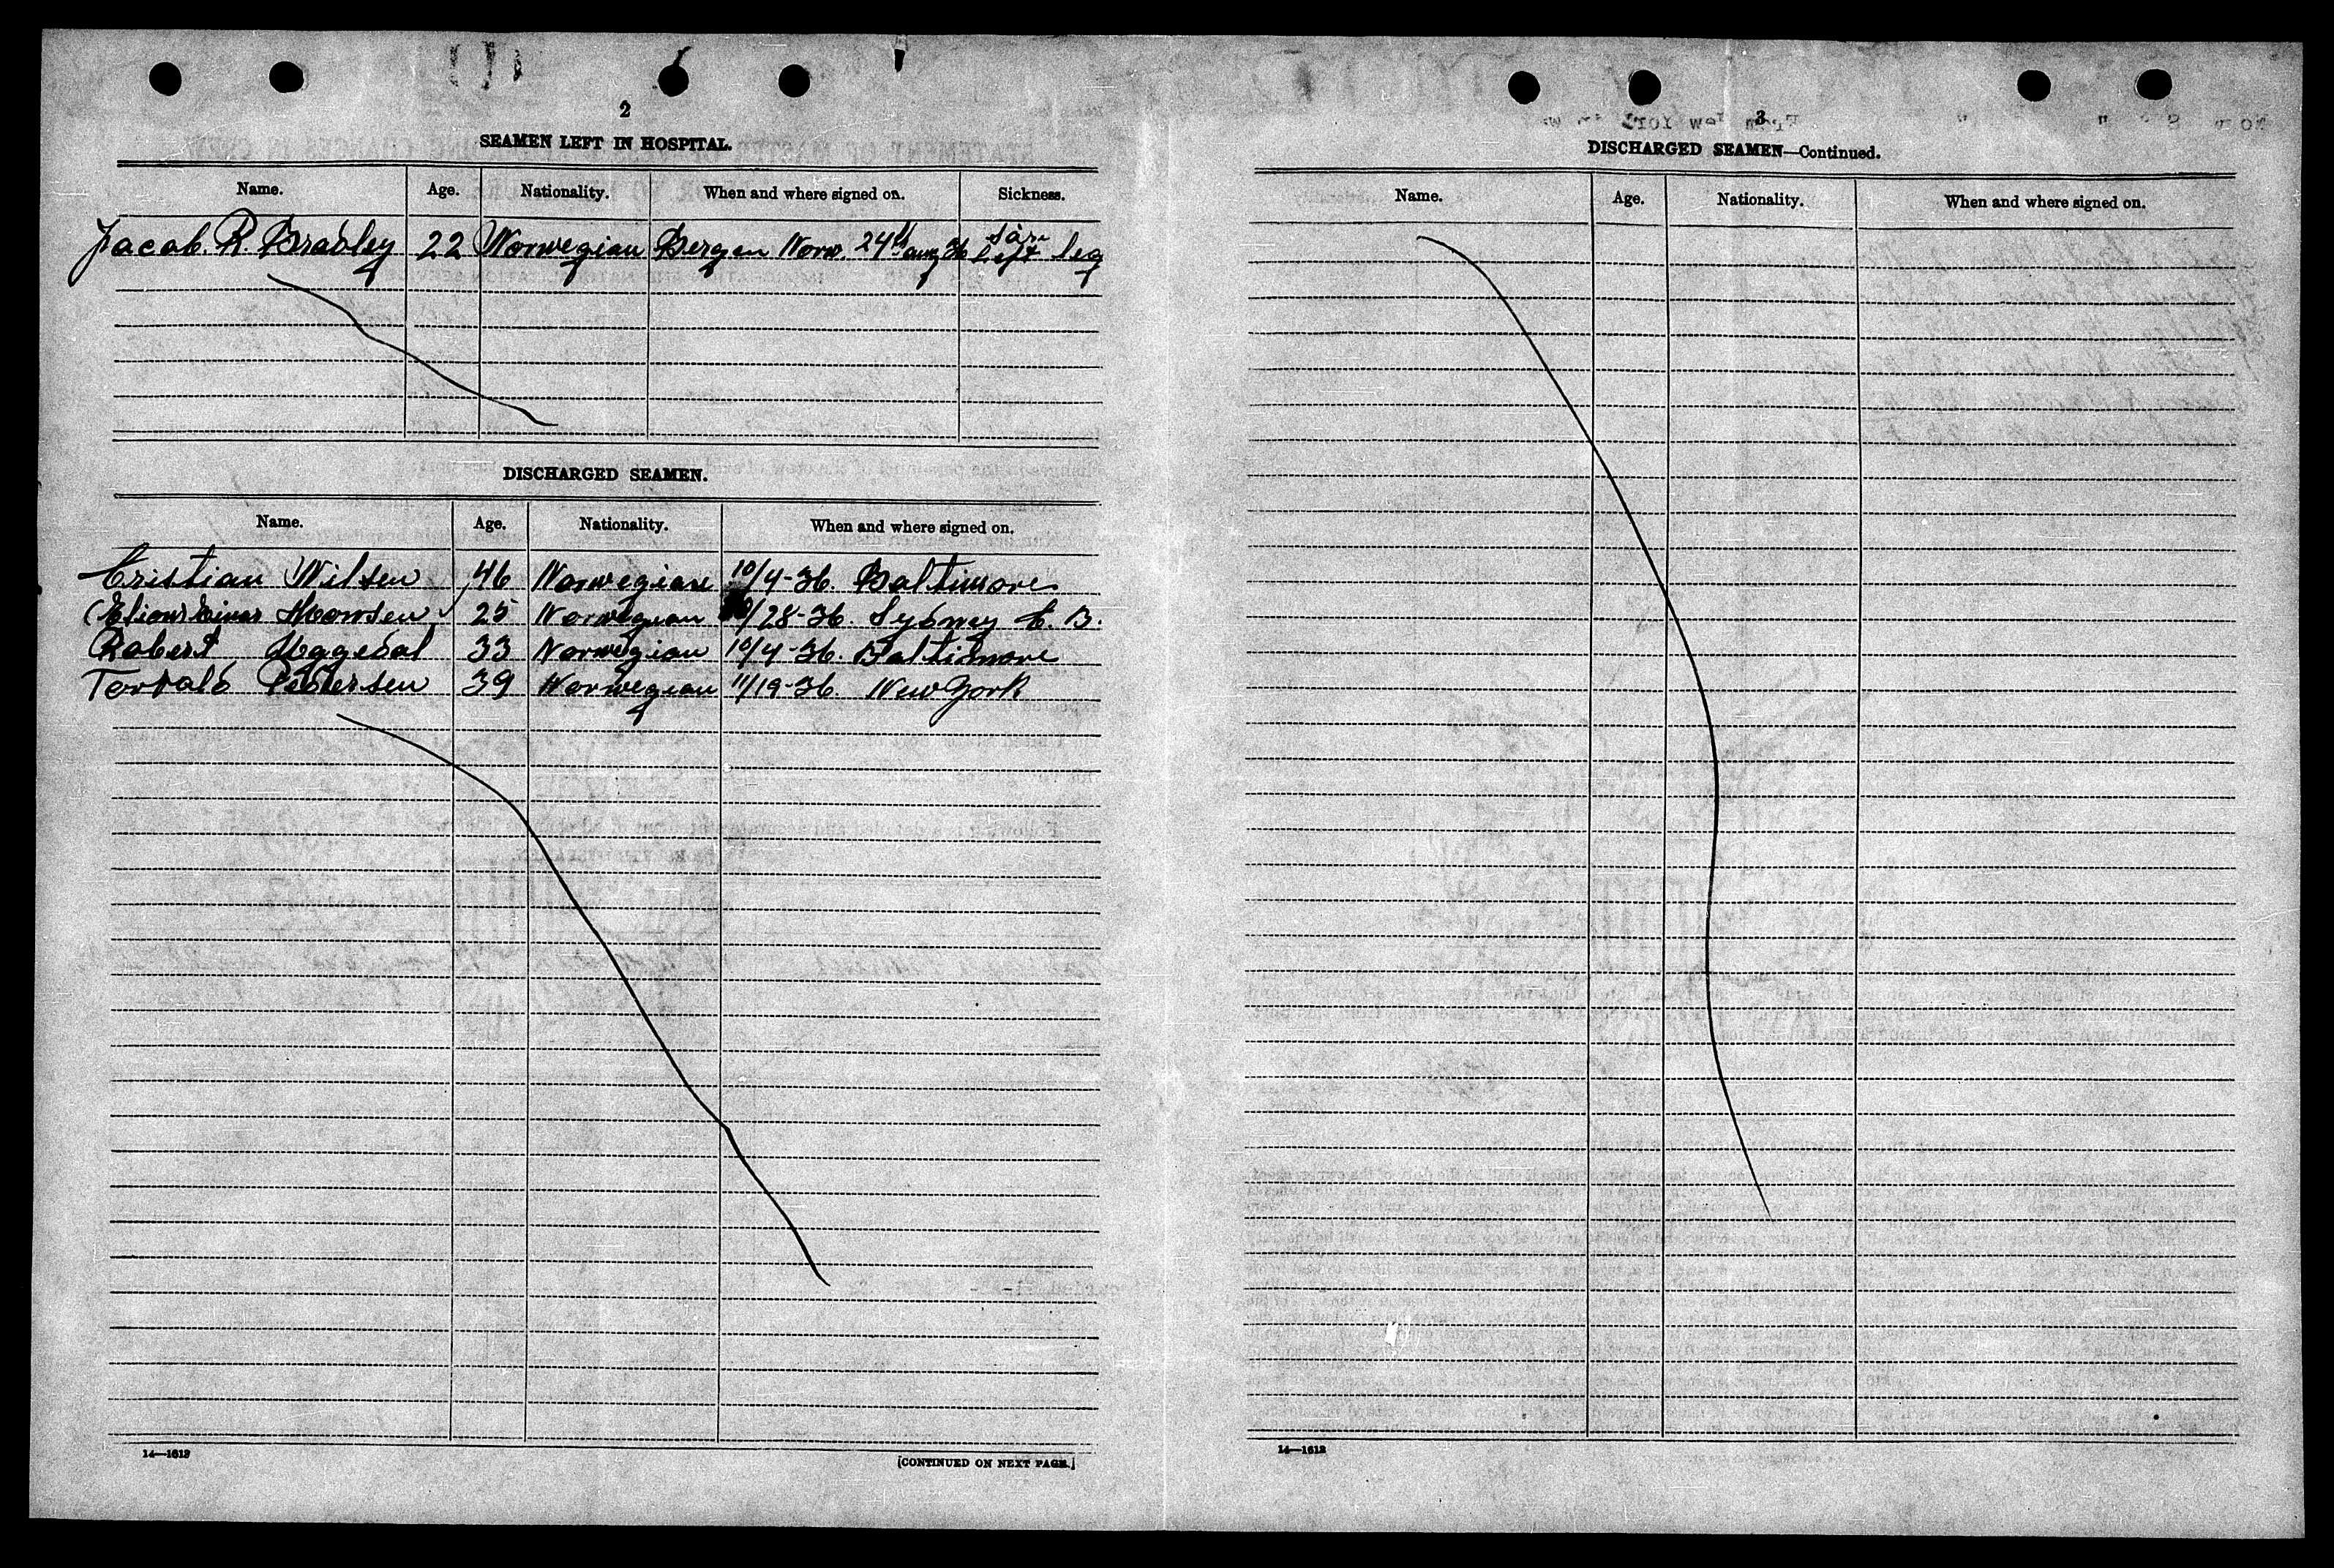 2
SEAMEN LEFT IN HOSPITAL.
Name. Age. Nationality. When and where signed on. Sickness.
Jacob. R. Bradley 22 Norwegian Bergen Norw. 24th aug 36 left leg
DISCHARGED SEAMEN.
Name. Age. Nationality. When and where signed on.
Cristian Nilsen 46 Norwegian 10/4-36 Baltimore
Einar 25 Norwegian /28-36 Sydney C. B.
Robert Uggedal 33 Norwegian 10/4-36. Baltimore
Torvald Pedersen 39 Norwegian 11/19-36 New York
14—1612
[CONTINUED ON NEXT PAGE.]
3
DISCHARGED SEAMEN—Continued.
Name. Age. Nationality. When and where signed on.
14—1612